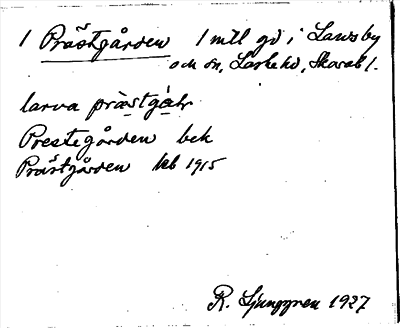 1 Prästgården 1 mtl gd i Larvs by
och sn, Laske hd, Skarab l.
larva præstgár
Prestegården bek
Prästgården kb 1915
R. Ljunggren 1927